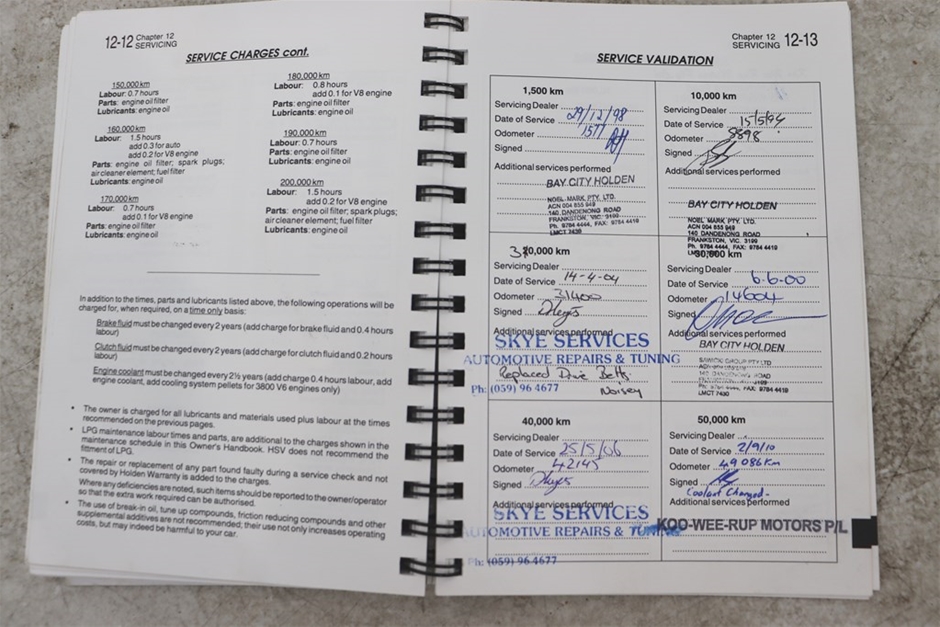 12-12 Chapter 12
SERVICING
SERVICE CHARGES cont.
150,000 km
Labour: 0.7 hours
Parts: engine oil filter
Lubricants: engine oil
160,000 km
Labour: 1.5 hours
add 0.3 for auto
add 0.2 for V8 engine
Parts: engine oil filter; spark plugs;
air cleaner element; fuel filter
Lubricants: engine oil
170,000 km
Labour: 0.7 hours
add 0.1 for V8 engine
Parts: engine oil filter
Lubricants: engine oil
180,000 km
Labour: 0.8 hours
add 0.1 for V8 engine
Parts: engine oil filter
Lubricants: engine oil
190,000 km
Labour: 0.7 hours
Parts: engine oil filter
Lubricants: engine oil
200,000 km
Labour: 1.5 hours
add 0.2 for V8 engine
Parts: engine oil filter; spark plugs;
air cleaner element; fuel filter
Lubricants: engine oil
In addition to the times, parts and lubricants listed above, the following operations will be
charged for, when required, on a time only basis:
Brake fluid must be changed every 2 years (add charge for brake fluid and 0.4 hours
labour)
Clutch fluid must be changed every 2 years (add charge for clutch fluid and 0.2 hours
labour)
Engine coolant must be changed every 2½ years (add charge 0.4 hours labour, add
engine coolant, add cooling system pellets for 3800 V6 engines only)
• The owner is charged for all lubricants and materials used plus labour at the times
recommended on the previous pages.
• LPG maintenance labour times and parts, are additional to the charges shown in the
maintenance schedule in this Owner's Handbook. HSV does not recommend the
fitment of LPG.
• The repair or replacement of any part found faulty during a service check and not
covered by Holden Warranty is added to the charges.
Where any deficiencies are noted, such items should be reported to the owner/operator
so that the extra work required can be authorised.
• The use of break-in oil, tune up compounds, friction reducing compounds and other
supplemental additives are not recommended, their use not only increases operating
costs, but may indeed be harmful to your car.
Chapter 12
SERVICING 12-13
SERVICE VALIDATION
1,500 km
Servicing Dealer
Date of Service 29/12/98
Odometer 1577
Signed
Additional services performed
BAY CITY HOLDEN
NOEL MARK PTY. LTD.
ACN 004 855 949
140 DANDENONG ROAD
FRANKSTON, VIC. 3199
P: 9784 4444, FAX: 9784 4419
LMCT 7430
10,000 km
Servicing Dealer
Date of Service 15/5/99
Odometer 8898
Signed
Additional services performed
BAY CITY HOLDEN
NOEL MARK PTY. LTD.
ACN 004 855 949
140 DANDENONG ROAD
FRANKSTON, VIC. 3199
P: 9784 4444, FAX: 9784 4419
20,000 km
Servicing Dealer
Date of Service 14-4-04
Odometer 31400
Signed
Additional services performed
SKYE SERVICES
AUTOMOTIVE REPAIRS & TUNING
Replaced Drive Belts
Noisey
Ph: (059) 96 4677
30,000 km
Servicing Dealer
Date of Service 6.6.00
Odometer 14604
Signed
Additional services performed
BAY CITY HOLDEN
DANDENONG ROAD
LMCT 7430
40,000 km
Servicing Dealer
Date of Service 25/5/06
Odometer 42145
Signed
Additional services performed
SKYE SERVICES
AUTOMOTIVE REPAIRS & TUNING
Ph: (059) 96 4677
50,000 km
Servicing Dealer
Date of Service 2/9/10
Odometer 49086 Km
Signed
Coolant Changed.
Additional services performed
KOO-WEE-RUP MOTORS P/L